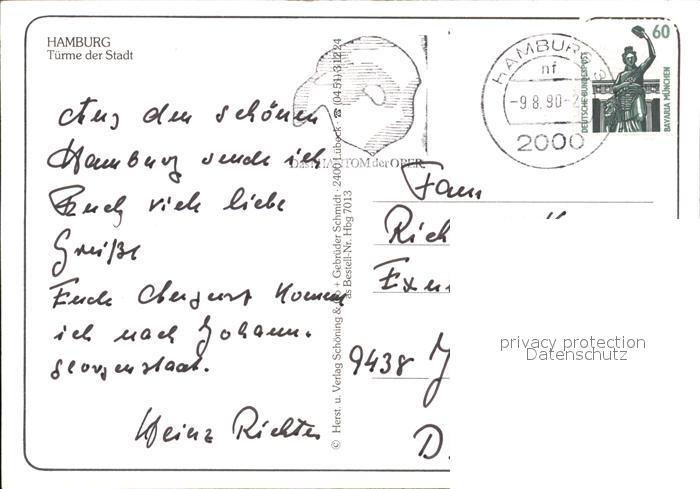 HAMBURG
Türme der Stadt
Aus dem schönen
Hamburg sende ich
Euch viele liebe
Grüße
Ende August komme
ich nach Johann-
georgenstadt.
Heinz Richter
© Herst. u. Verlag Schöning & Co + Gebrüder Schmidt · 2400 Lübeck · ☎ (04 51) 3 12 24
as Bestell-Nr. Hbg 7013
Das PHANTOM der OPER
HAMBURG
nf
-9.8.90-
2000
60
DEUTSCHE BUNDESPOST
BAVARIA MÜNCHEN
Fam
Rich
9438 J
D.
privacy protection
Datenschutz